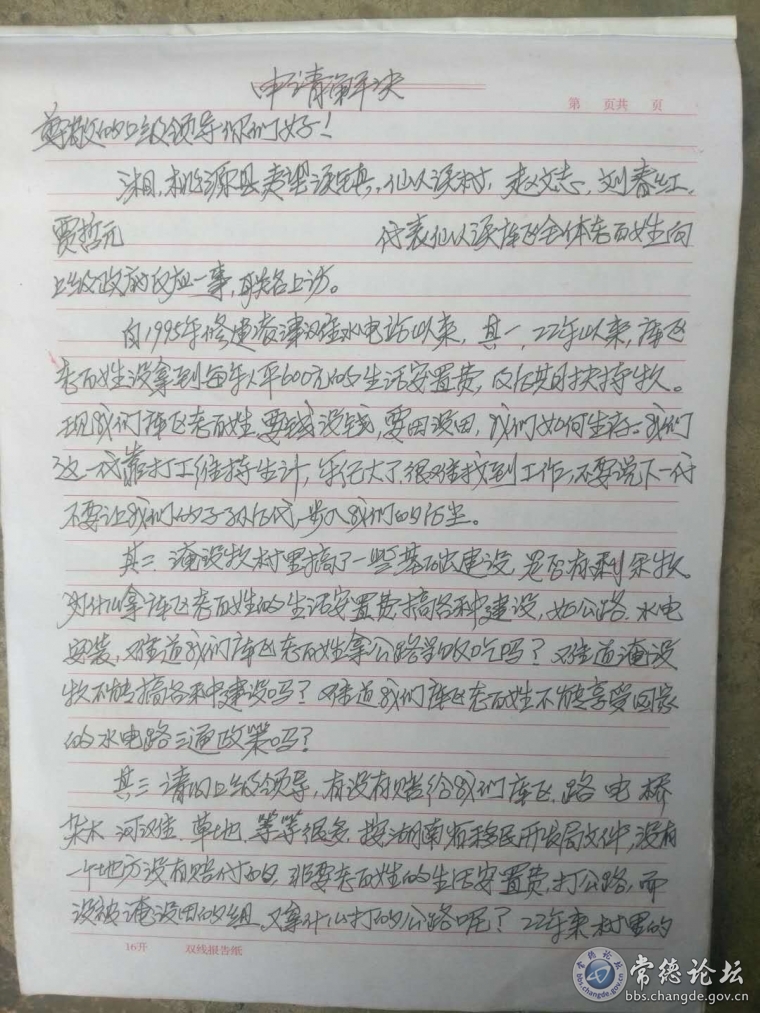 申请解决
第 页共 页
尊敬的上级领导你们好！
湘，桃源县夷望溪镇，仙人溪村，赵文志，刘春红，
贾哲元 代表仙人溪库区全体老百姓向
上级政府反应一事，联名上访。
自1995年修建凌津滩水电站以来，其一，22年以来，库区
老百姓没拿到每年人平600元的生活安置费，及后期扶持款。
现我们库区老百姓要钱没钱，要田没田，我们如何生存：我们
这一代靠打工维持生计，年纪大了很难找到工作，不要说下一代
不要让我们的子孙后代，步入我们的后尘。
其二 淹没款村里搞了一些基础建设，是否有剩余款。
为什么拿库区老百姓的生活安置费搞各种建设，如公路、水电
安装，难道我们库区老百姓拿公路当饭吃吗？难道淹没
款不能搞各种建设吗？难道我们库区老百姓不能享受国家
的水电路三通政策吗？
其三 请问上级领导，有没有赔给我们库区，路 电 桥
杂木 河滩 草地 等等很多，按湖南省移民开发局文件，没有
一个地方没有赔付的，非要老百姓的生活安置费，打公路，而
没被淹没田的组，又拿什么打的公路呢？22年来村里的
16开 双线报告纸
常德论坛
bbs.changde.gov.cn